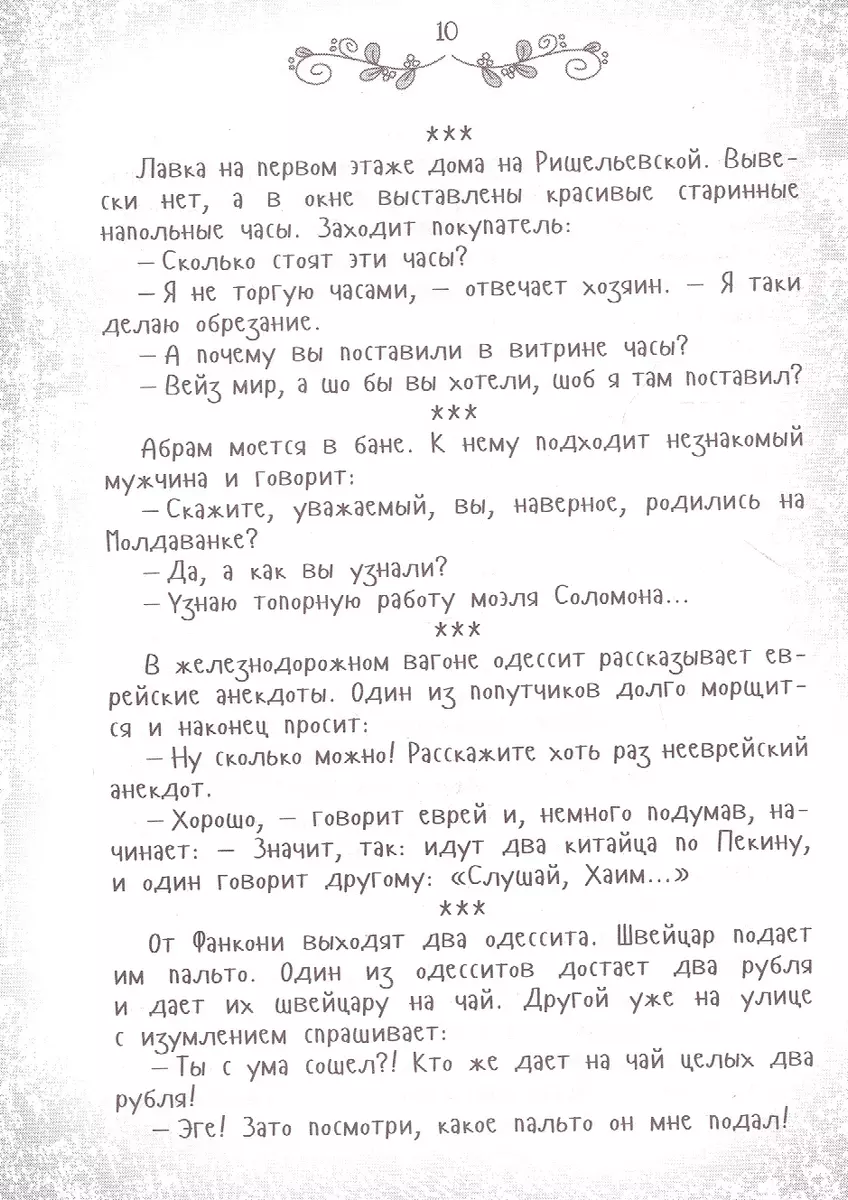 10
***
Лавка на первом этаже дома на Ришельевской. Выве-
ски нет, а в окне выставлены красивые старинные
напольные часы. Заходит покупатель:
— Сколько стоят эти часы?
— Я не торгую часами, — отвечает хозяин. — Я таки
делаю обрезание.
— А почему вы поставили в витрине часы?
— Вейз мир, а шо бы вы хотели, шоб я там поставил?
***
Абрам моется в бане. К нему подходит незнакомый
мужчина и говорит:
— Скажите, уважаемый, вы, наверное, родились на
Молдаванке?
— Да, а как вы узнали?
— Узнаю топорную работу моэля Соломона...
***
В железнодорожном вагоне одессит рассказывает ев-
рейские анекдоты. Один из попутчиков долго морщит-
ся и наконец просит:
— Ну сколько можно! Расскажите хоть раз нееврейский
анекдот.
— Хорошо, — говорит еврей и, немного подумав, на-
чинает: — Значит, так: идут два китайца по Пекину,
и один говорит другому: «Слушай, Хаим...»
***
От Фанкони выходят два одессита. Швейцар подает
им пальто. Один из одесситов достает два рубля
и дает их швейцару на чай. Другой уже на улице
с изумлением спрашивает:
— Ты с ума сошел?! Кто же дает на чай целых два
рубля!
— Эге! Зато посмотри, какое пальто он мне подал!